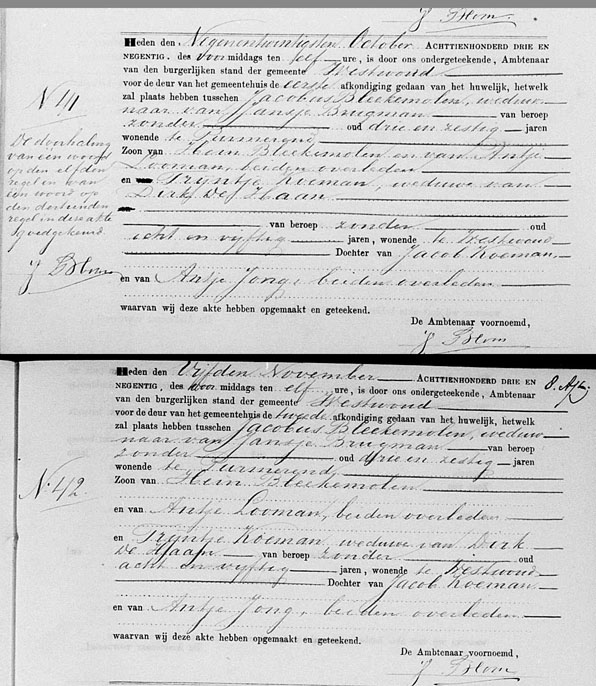 J Blom.
Heden den Negenentwintigsten October ACHTTIENHONDERD DRIE EN
NEGENTIG, des Voor middags ten elf ure, is door ons ondergeteekende, Ambtenaar
van den burgerlijken stand der gemeente Westwoud
voor de deur van het gemeentehuis de eerste afkondiging gedaan van het huwelijk, hetwelk
zal plaats hebben tusschen Jacobus Bleekemolen, weduw-
naar van Jansje Brugman van beroep
zonder oud drie en zestig jaren
wonende te
Zoon van Hein Bleekemolen en van Antje
Looman, beiden overleden
en Trijntje Koeman, weduwe van
Dirk De Haan
van beroep zonder oud
acht en vijftig jaren, wonende te Westwoud
Dochter van Jacob Koeman
en van Antje Jong, beiden overleden
waarvan wij deze akte hebben opgemaakt en geteekend.
De Ambtenaar voornoemd,
J Blom
No 41
De doorhaling
van een woord
op den elfden
regel en van
een woord op
den dertienden
regel in deze akte
goedgekeurd.
J Blom
Heden den Vijfden November ACHTTIENHONDERD DRIE EN
NEGENTIG, des Voor middags ten elf ure, is door ons ondergeteekende, Ambtenaar
van den burgerlijken stand der gemeente Westwoud
voor de deur van het gemeentehuis de tweede afkondiging gedaan van het huwelijk, hetwelk
zal plaats hebben tusschen Jacobus Bleekemolen, weduw-
naar van Jansje Brugman van beroep
zonder oud drie en zestig jaren
wonende te
Zoon van Hein Bleekemolen
en van Antje Looman, beiden overleden
en Trijntje Koeman, weduwe van Dirk
De Haan van beroep zonder oud
acht en vijftig jaren, wonende te Westwoud
Dochter van Jacob Koeman
en van Antje Jong, beiden overleden
waarvan wij deze akte hebben opgemaakt en geteekend.
De Ambtenaar voornoemd,
J Blom
No 42.
8.